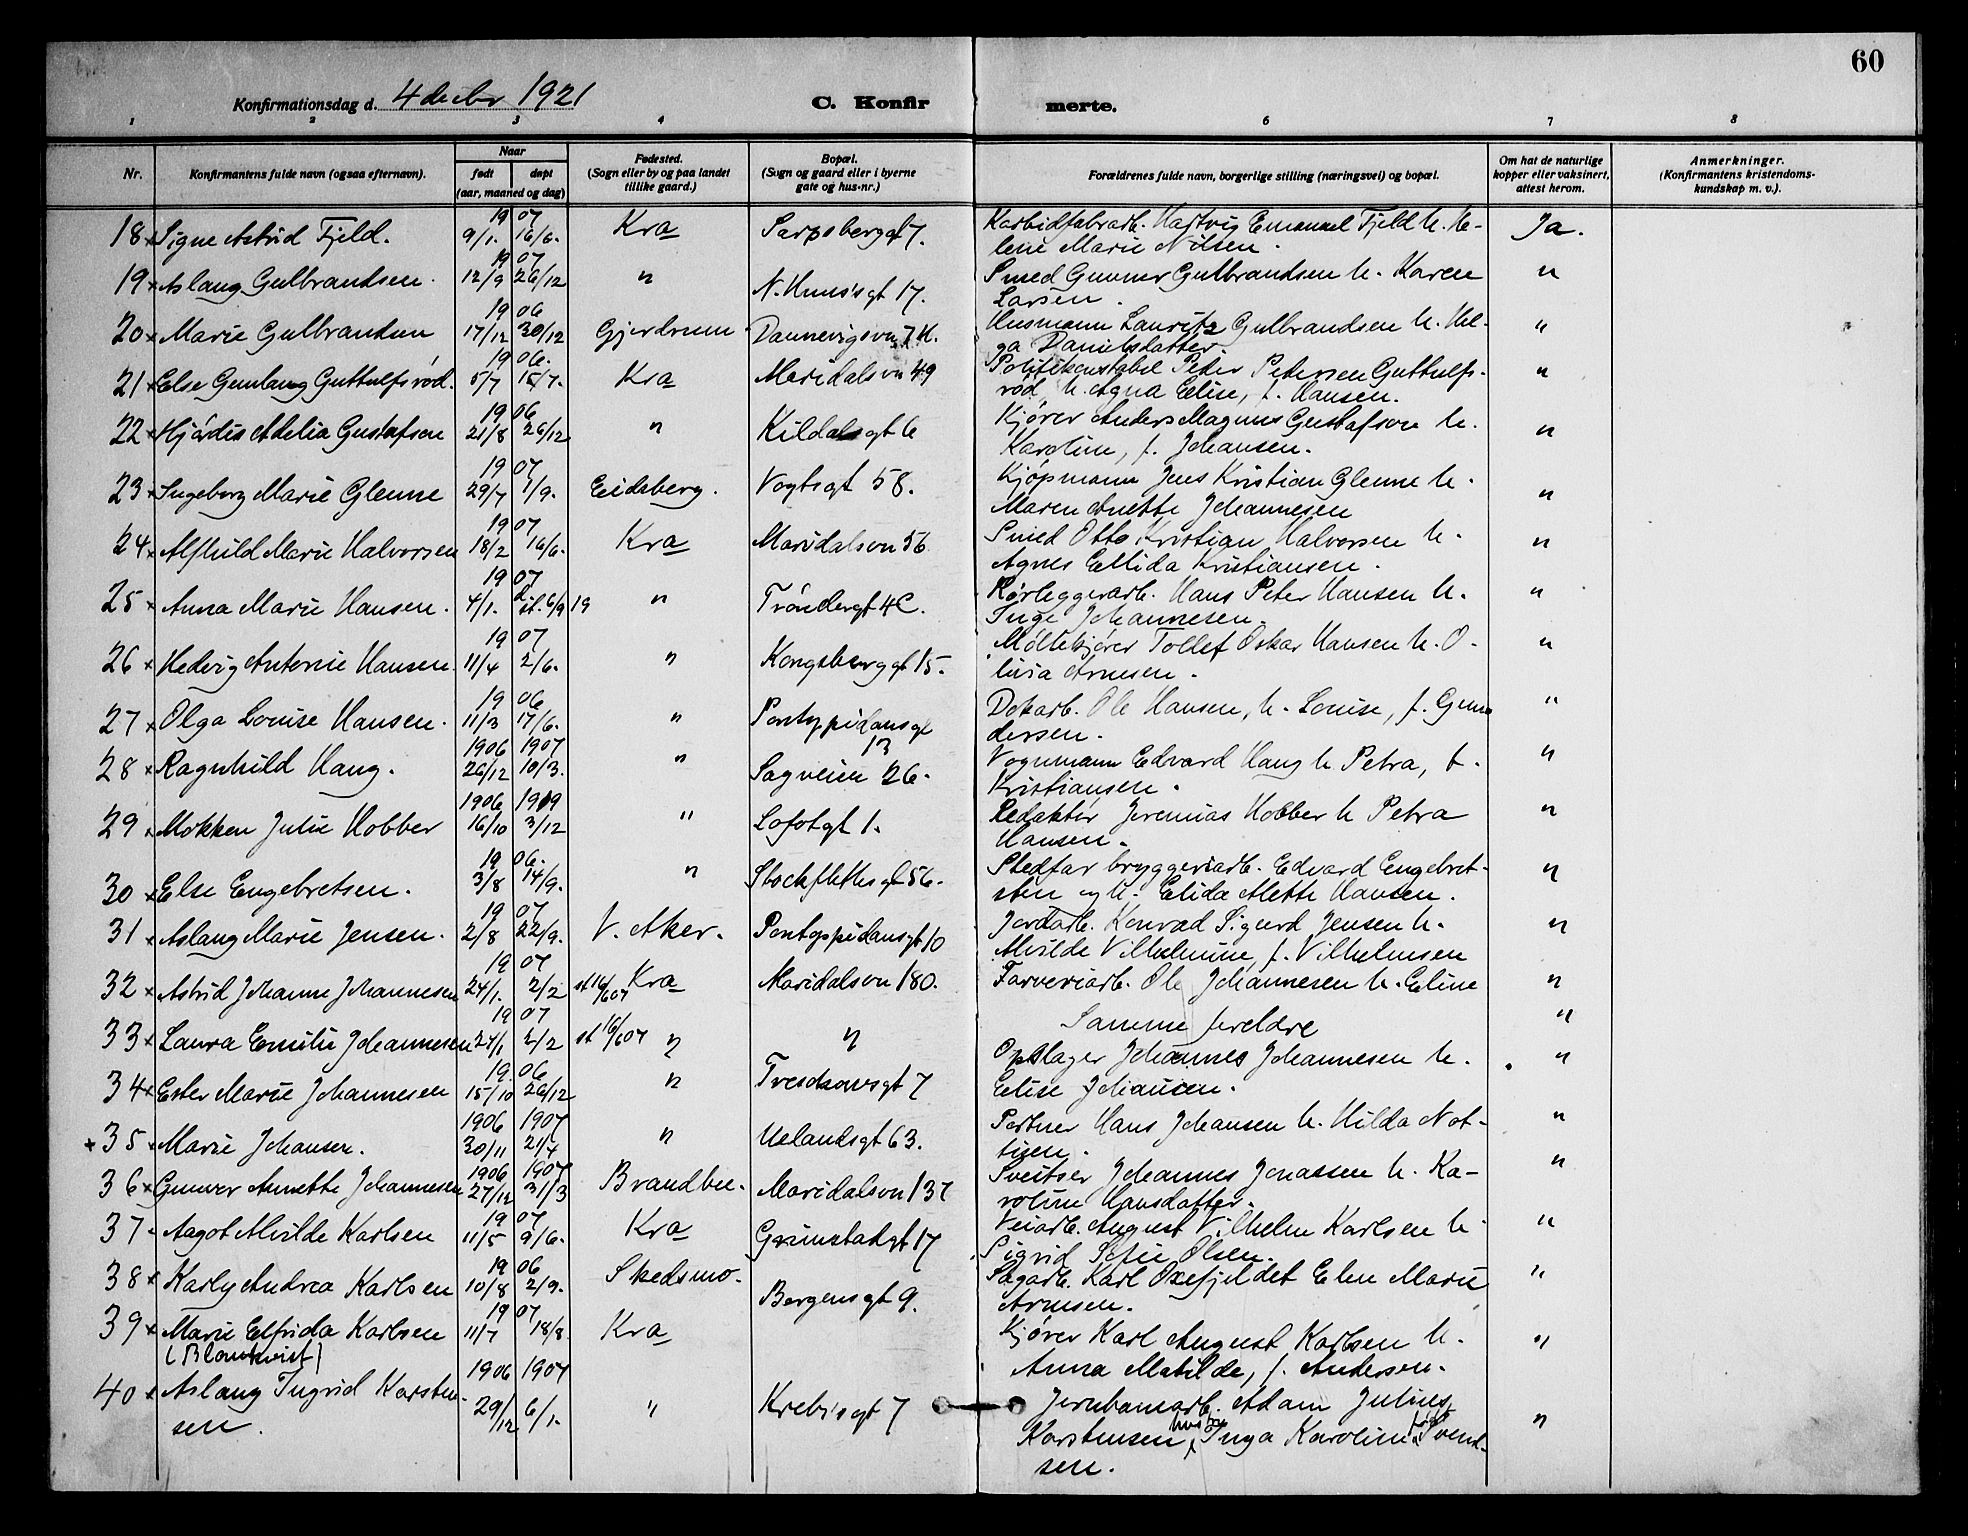 60
Konfirmationsdag d. 4 decbr 1921 C. Konfirmerte.
1 2 3 4 5 6 7 8
Nr. Konfirmantens fulde navn (ogsaa efternavn). Naar født døpt (aar, maaned og dag) Fødested. (Sogn eller by og paa landet tillike gaard.) Bopæl. (Sogn og gaard eller i byerne gate og hus-nr.) Forældrenes fulde navn, borgerlige stilling (næringsvei) og bopæl. Om hat de naturlige kopper eller vaksinert, attest herom. Anmerkninger. (Konfirmantens kristendomskundskap m. v.).
19 07
18 × Signe Astrid Fjeld. 9/1. 16/6. Kra Sarpsborggt 7. Karbidfabrarb. Hartvig Emanuel Fjeld h. He- Ja.
lene Marie Nilsen.
19 07
19 × Aslaug Gulbrandsen. 12/9 26/12 " N. Huusgt 17. Smed Gunnar Gulbrandsen h. Karen "
Larsen.
19 06
20 × Marie Gulbrandsen 17/12 30/12 Gjerdrum Dannevigsvn 7 H. Husmann Lauritz Gulbrandsen h. Hel- "
ga Danielsdatter.
19 06.
21 × Else Gunlaug Guttulfsrød. 5/7 15/7. Kra Maridalsvn 49 Politikonstabel Peder Pedersen Guttulfs- "
rød, h. Agna Elise, f. Hansen.
19 06
22 × Hjørdis Adelia Gustafsen 21/8 26/12 " Kildalsgt 6 Kjører Anders Magnus Gustafson h. "
Karoline, f. Johansen.
19 07
23 × Ingeborg Marie Glenne 29/7 1/9. Eidsberg. Vogtsgt 58. Kjøpmann Jens Kristian Glenne h. "
Maren Anette Johannesen
19 07
24 × Alfhild Marie Halvorsen 18/2 16/6. Kra Maridalsvn 56 Smed Otto Kristian Halvorsen h. "
Agnes Ellida Kristiansen.
19 07
25 × Anna Marie Hansen. 4/1. st. 6/9 19 " Trøndergt 4C. Rørleggerarb. Hans Peter Hansen h. "
Inge Johannesen.
19 07
26 × Hedvig Antonie Hansen. 11/4 2/6. " Kongsberggt 15. Møllekjører Tollef Oskar Hansen h. O- "
lusia Arnesen.
19 06
27 × Olga Louise Hansen. 11/3 17/6. " Pontoppidansgt Dokarb. Ole Hansen, h. Louise, f. Gun "
13 dersen.
1906 1907
28 × Ragnhild Haug. 26/12 10/3. " Sagveien 26. Vognmann Edvard Haug h Petra, f. "
Kristiansen.
1906 1919
29 × Mokken Julie Hobber 16/10 3/12 " Lofotgt 1. Redaktør Jeremias Hobber h Petra "
Hansen.
19 06.
30 × Else Engebretsen. 3/8 14/9. " Stockflethsgt 56. Stedfar bryggeriarb. Edvard Engebret- "
sten og h. Elida Mette Hansen.
19 07
31 × Aslaug Marie Jensen. 2/8 22/9. V. Aker. Pontoppidansgt 10 Jordarb. Konrad Sigurd Jensen h. "
Alvilde Vilhelmine, f. Vilhelmsen
19 07
32 × Astrid Johanne Johannesen 24/1. 2/2 st 16/6 07 Kra Maridalsvn 180. Farveriarb. Ole Johannesen h. Eline "
19 07
33 × Laura Emilie Johannesen 24/1 2/2 st 16/6 07 " " Samme foreldre "
19 06
34 × Ester Marie Johannesen 15/10 26/12 " Treschowsgt 7 Opslager Johannes Johannesen h. "
Elise Johansen.
1906 1907
× 35 × Marie Johansen. 30/11 21/4 " Uelandsgt 63. Portner Hans Johansen h. Hilda Not- "
tuen.
1906 1907
36 × Gunver Annette Johannesen 27/12 31/3 Brandbu. Maridalsvn 137 Sveitser Johannes Jonassen h. Ka- "
roline Hansdatter.
19 07
37 Aagot Alvilde Karlsen 11/5 9/6. Kra Grimstadgt 17 Veiarb. August Vilhelm Karlsen h. "
Sigrid Sofie Olsen.
19 06
38 × Karly Andrea Karlsen 10/8 2/9. Skedsmo. Bergensgt 9. Sagarb. Karl Oxefjeldet Elen Marie "
Arnesen.
19 07
39 × Marie Elfrida Karlsen 11/7 18/8 Kra Kjører Karl August Karlsen h. "
(Blomkvist) Anna Matilde, f. Andersen.
1906 1907
40 × Aslaug Ingrid Karsten- 29/12 6/1. " Krebsgt 7 Jernbanearb. Adam Julius "
sen. Karstensen, hustru Inga Karoline født Svend-
sen.